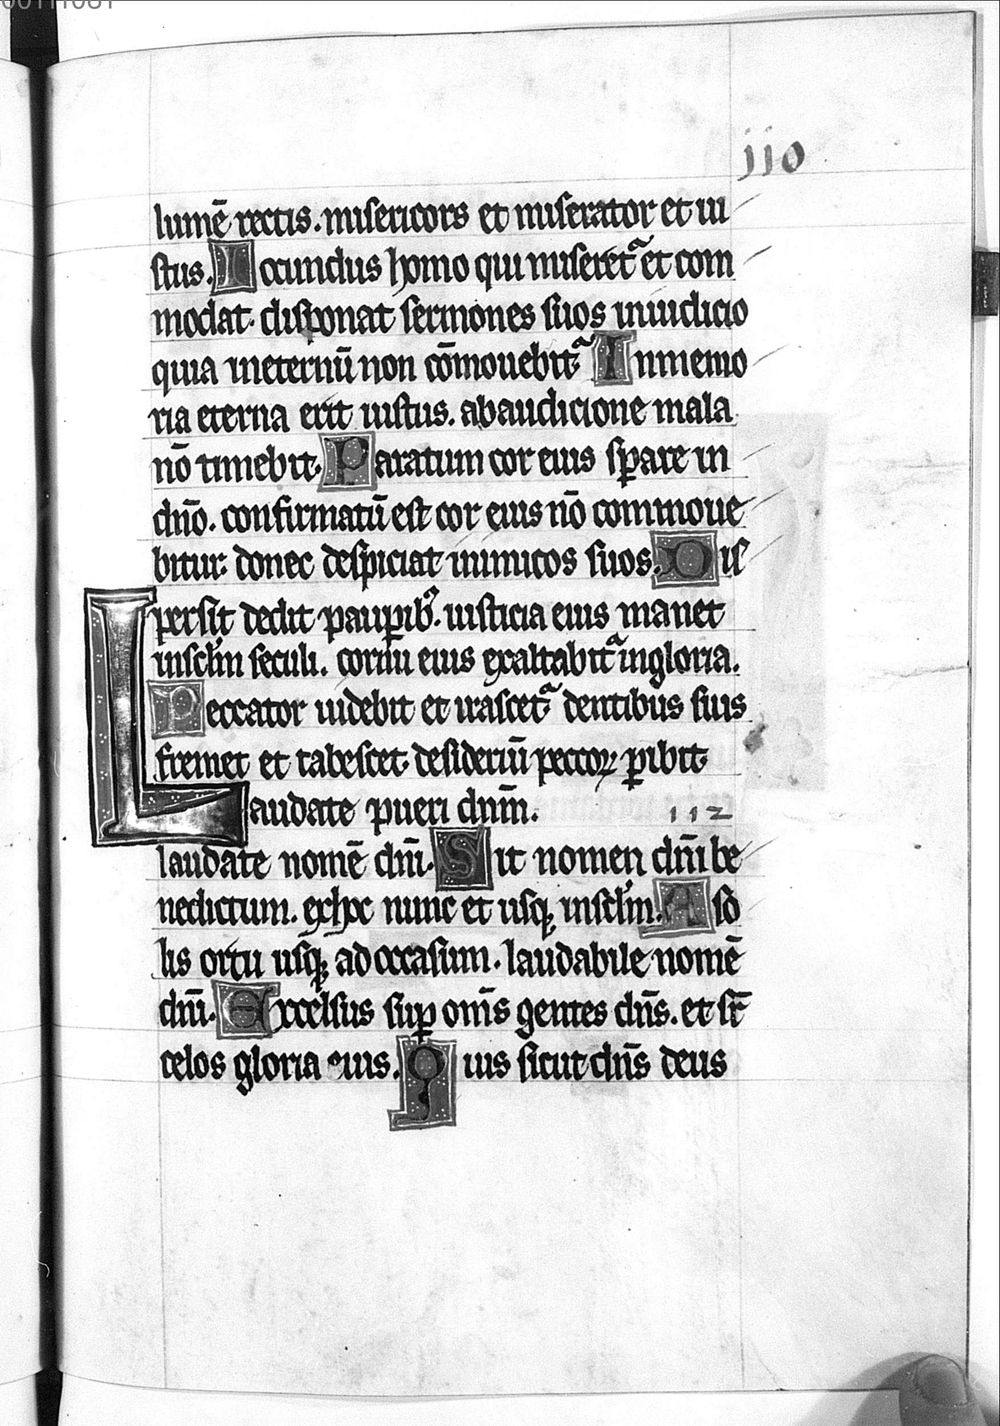 00111081
110
lumē rectis. misericors et miserator et iu
stus. Iocundus homo qui miseretᵃ et com
modat. disponat sermones suos iniudicio
quia ineternū non cōmouebitᵃ Inmemo
ria eterna erit iustus. abaudicione mala
nō timebit. Paratum cor eius sꝑare in
dn̄o. confirmatū est cor eius nō commoue
bitur: donec despiciat inimicos suos. Dis
persit dedit pauꝑibꝰ. iusticia eius manet
insclm̄ seculi. cornu eius exaltabitᵃ ingloria.
Peccator uidebit et irascetᵃ dentibus suis
fremet et tabescet. desideriū peccoꝝ ꝑibit.
Laudate pueri dnm̄. 112
laudate nomē dnī. Sit nomen dnī be
nedictum. exhoc nunc et usqꝫ insclm̄. A so
lis ortu usqꝫ ad occasum. laudabile nomē
dnī. Excelsus suꝑ om̄s gentes dn̄s. et sr̄
celos gloria eius. Quis sicut dn̄s deus